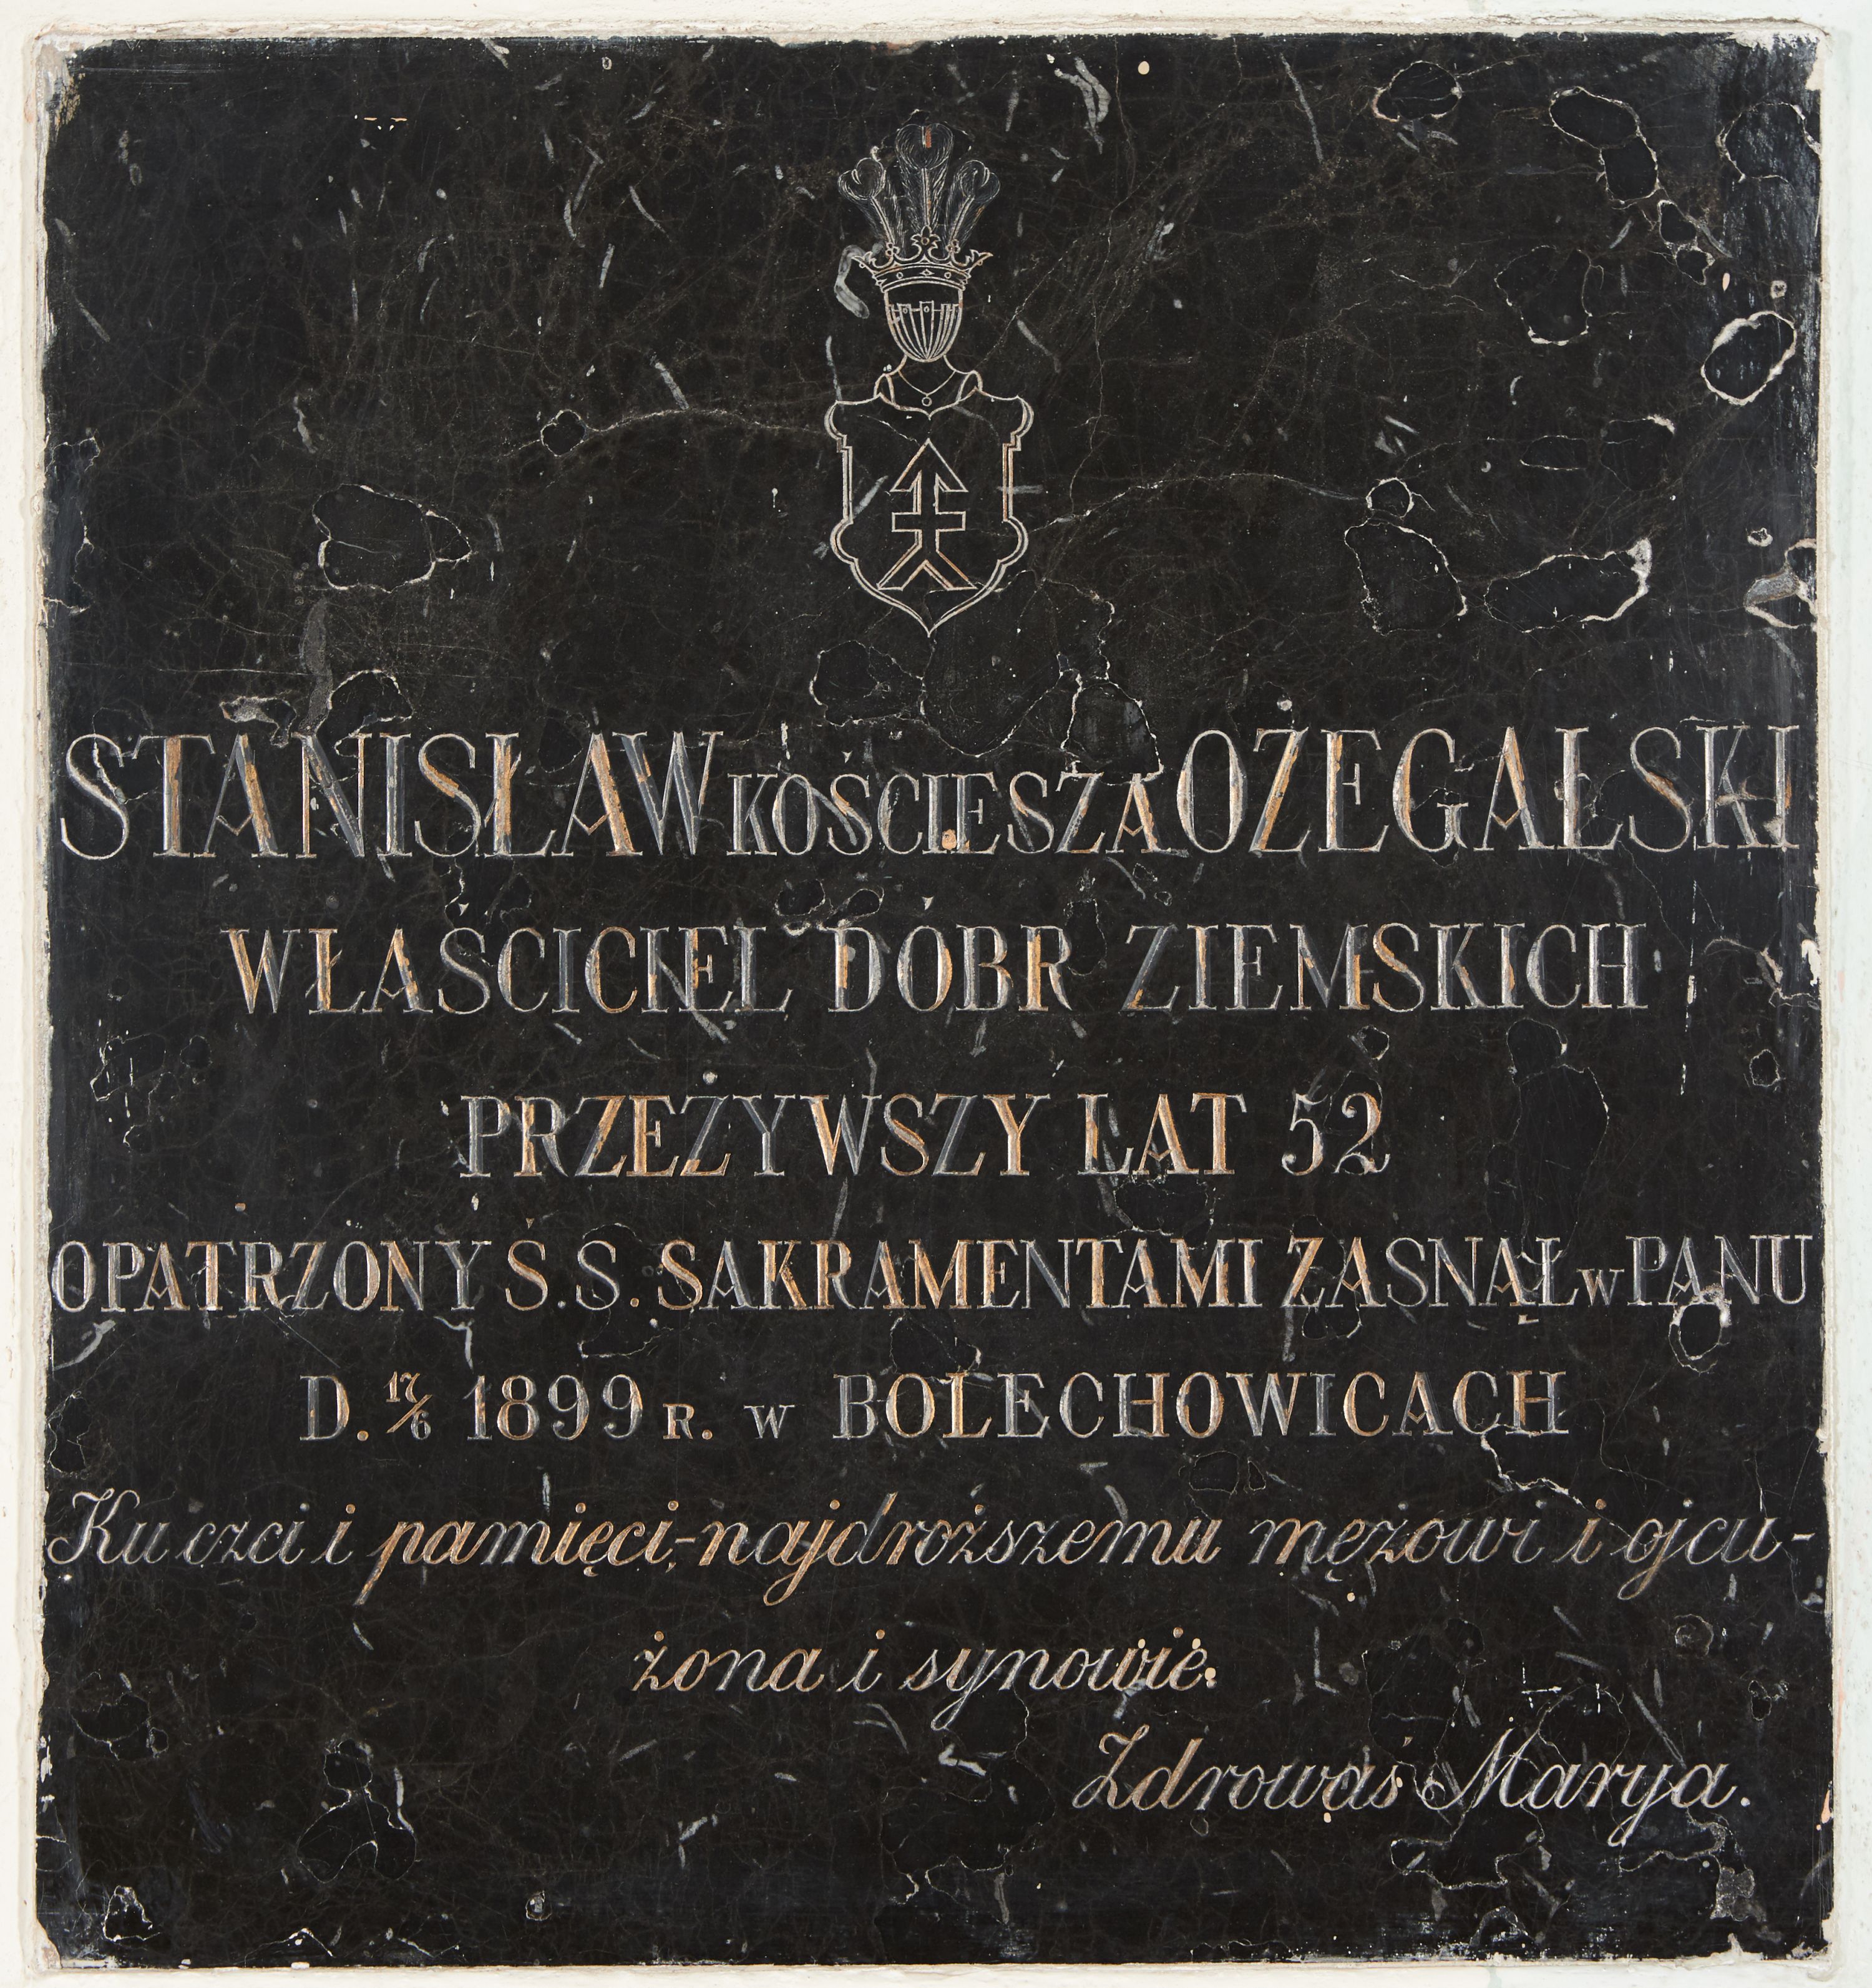 STANISŁAW KOŚCIESZA OŻEGALSKI
WŁAŚCICIEL DÓBR ZIEMSKICH
PRZEŻYWSZY LAT 52
OPATRZONY Ś.S. SAKRAMENTAMI ZASNĄŁ w PANU
D. 17/6 1899 R. w BOLECHOWICACH
Ku czci i pamięci,-najdroższemu mężowi i ojcu-
żona i synowie.
Zdrowaś Marya.